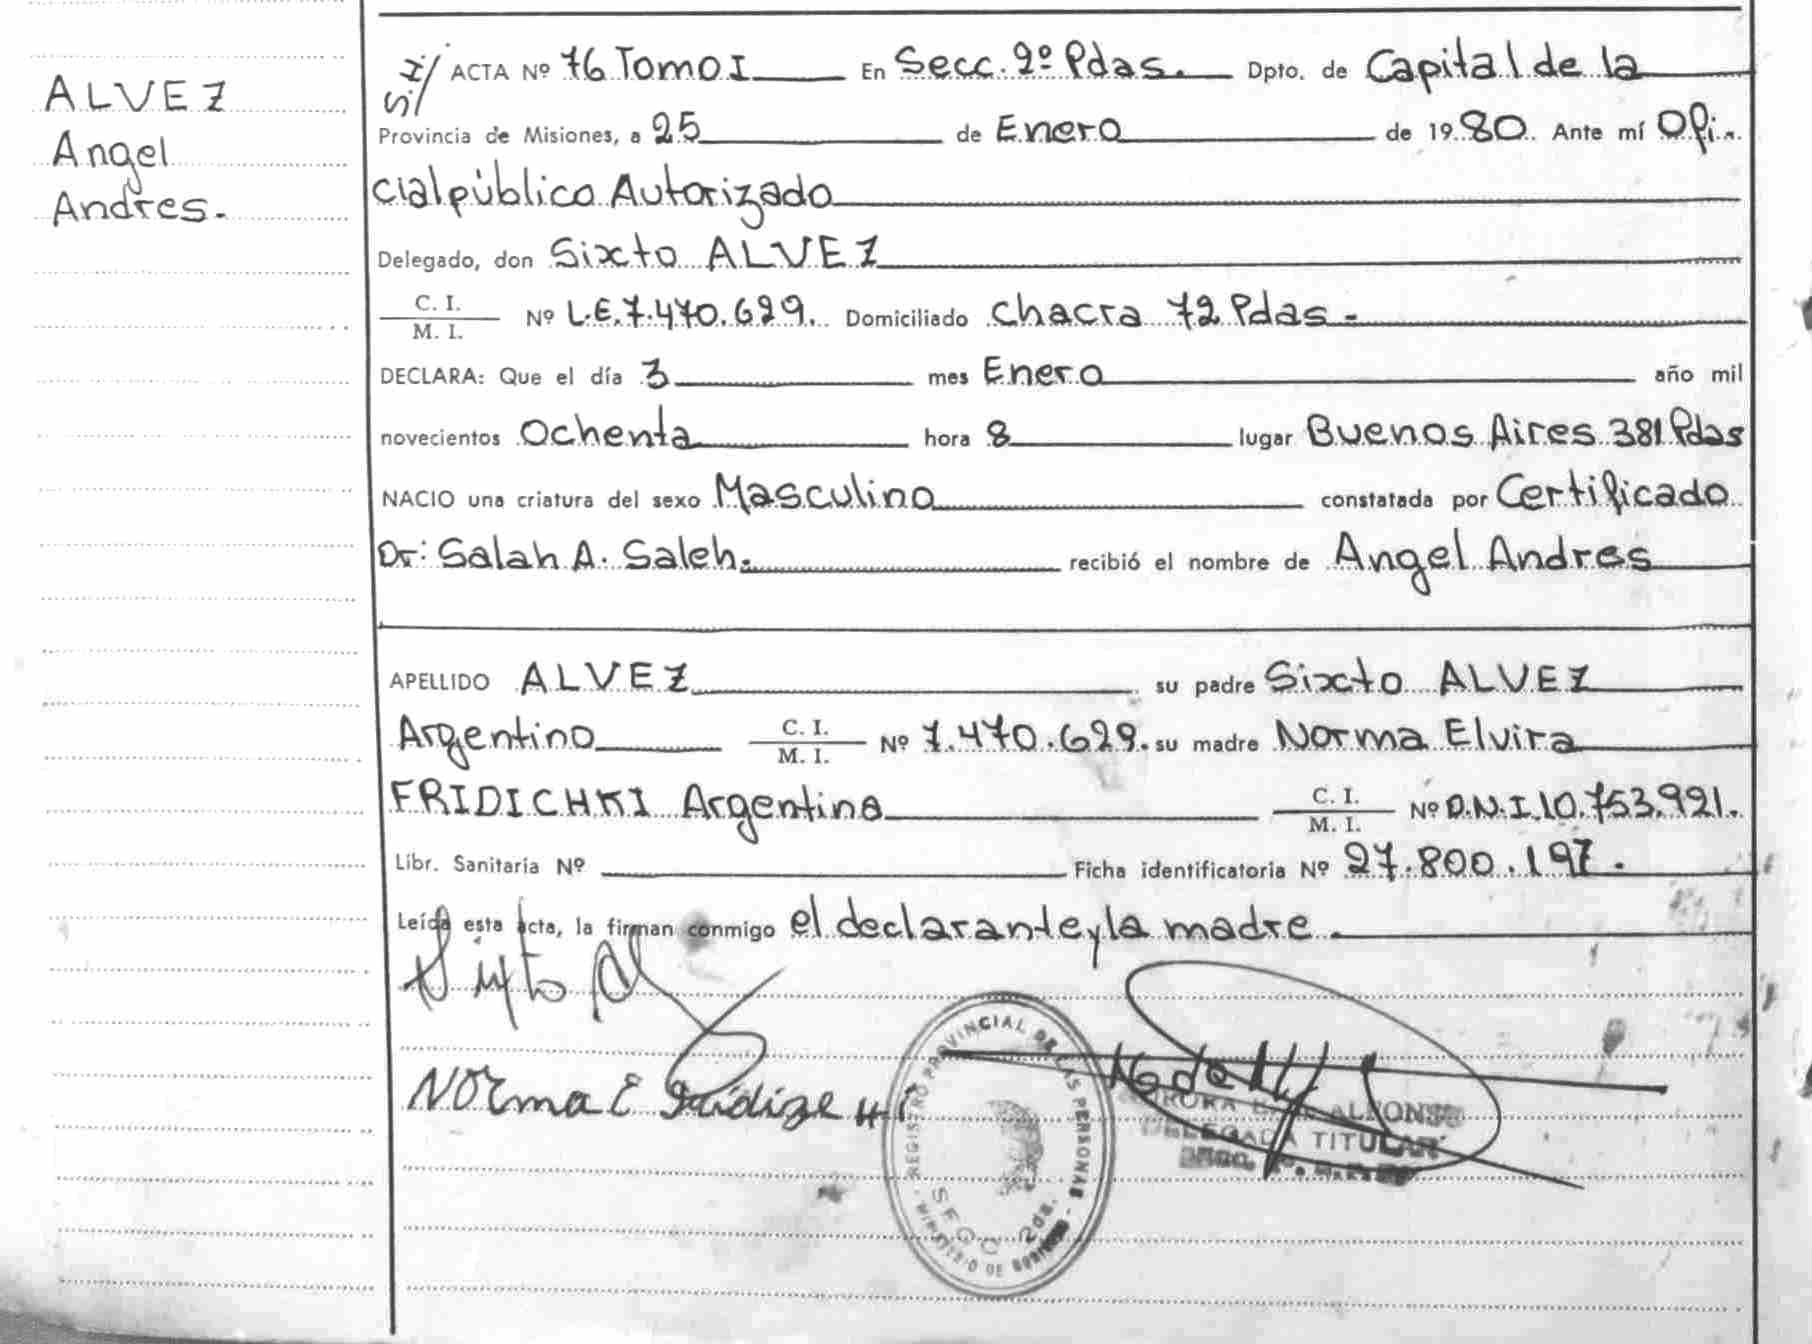 ALVEZ
Angel
Andres.
S/I ACTA Nº 76 Tomo I En Secc. 2º Pdas. Dpto. de Capital de la
Provincia de Misiones, a 25 de Enero de 1980. Ante mí Ofi-
cial público Autorizado
Delegado, don Sixto ALVEZ
C. I.
M. I.
Nº L.E. 7.470.629. Domiciliado Chacra 72 Pdas -
DECLARA: Que el día 3 mes Enero año mil
novecientos Ochenta hora 8 lugar Buenos Aires 381 Pdas
NACIO una criatura del sexo Masculino constatada por Certificado
Dr: Salah A. Saleh. recibió el nombre de Angel Andres
APELLIDO ALVEZ su padre Sixto ALVEZ
Argentino C. I.
M. I.
Nº 7.470.629. su madre Norma Elvira
FRIDICHKI Argentina C. I.
M. I.
Nº D.N.I. 10.753.921.
Libr. Sanitaria Nº Ficha identificatoria Nº 27.800.197.
Leída esta acta, la firman conmigo el declarante y la madre.
Norma E
REGISTRO PROVINCIAL DE LAS PERSONAS
SECC 2da.
MINISTERIO DE GOBIERNO
ALFONSO
DELEGADA TITULAR